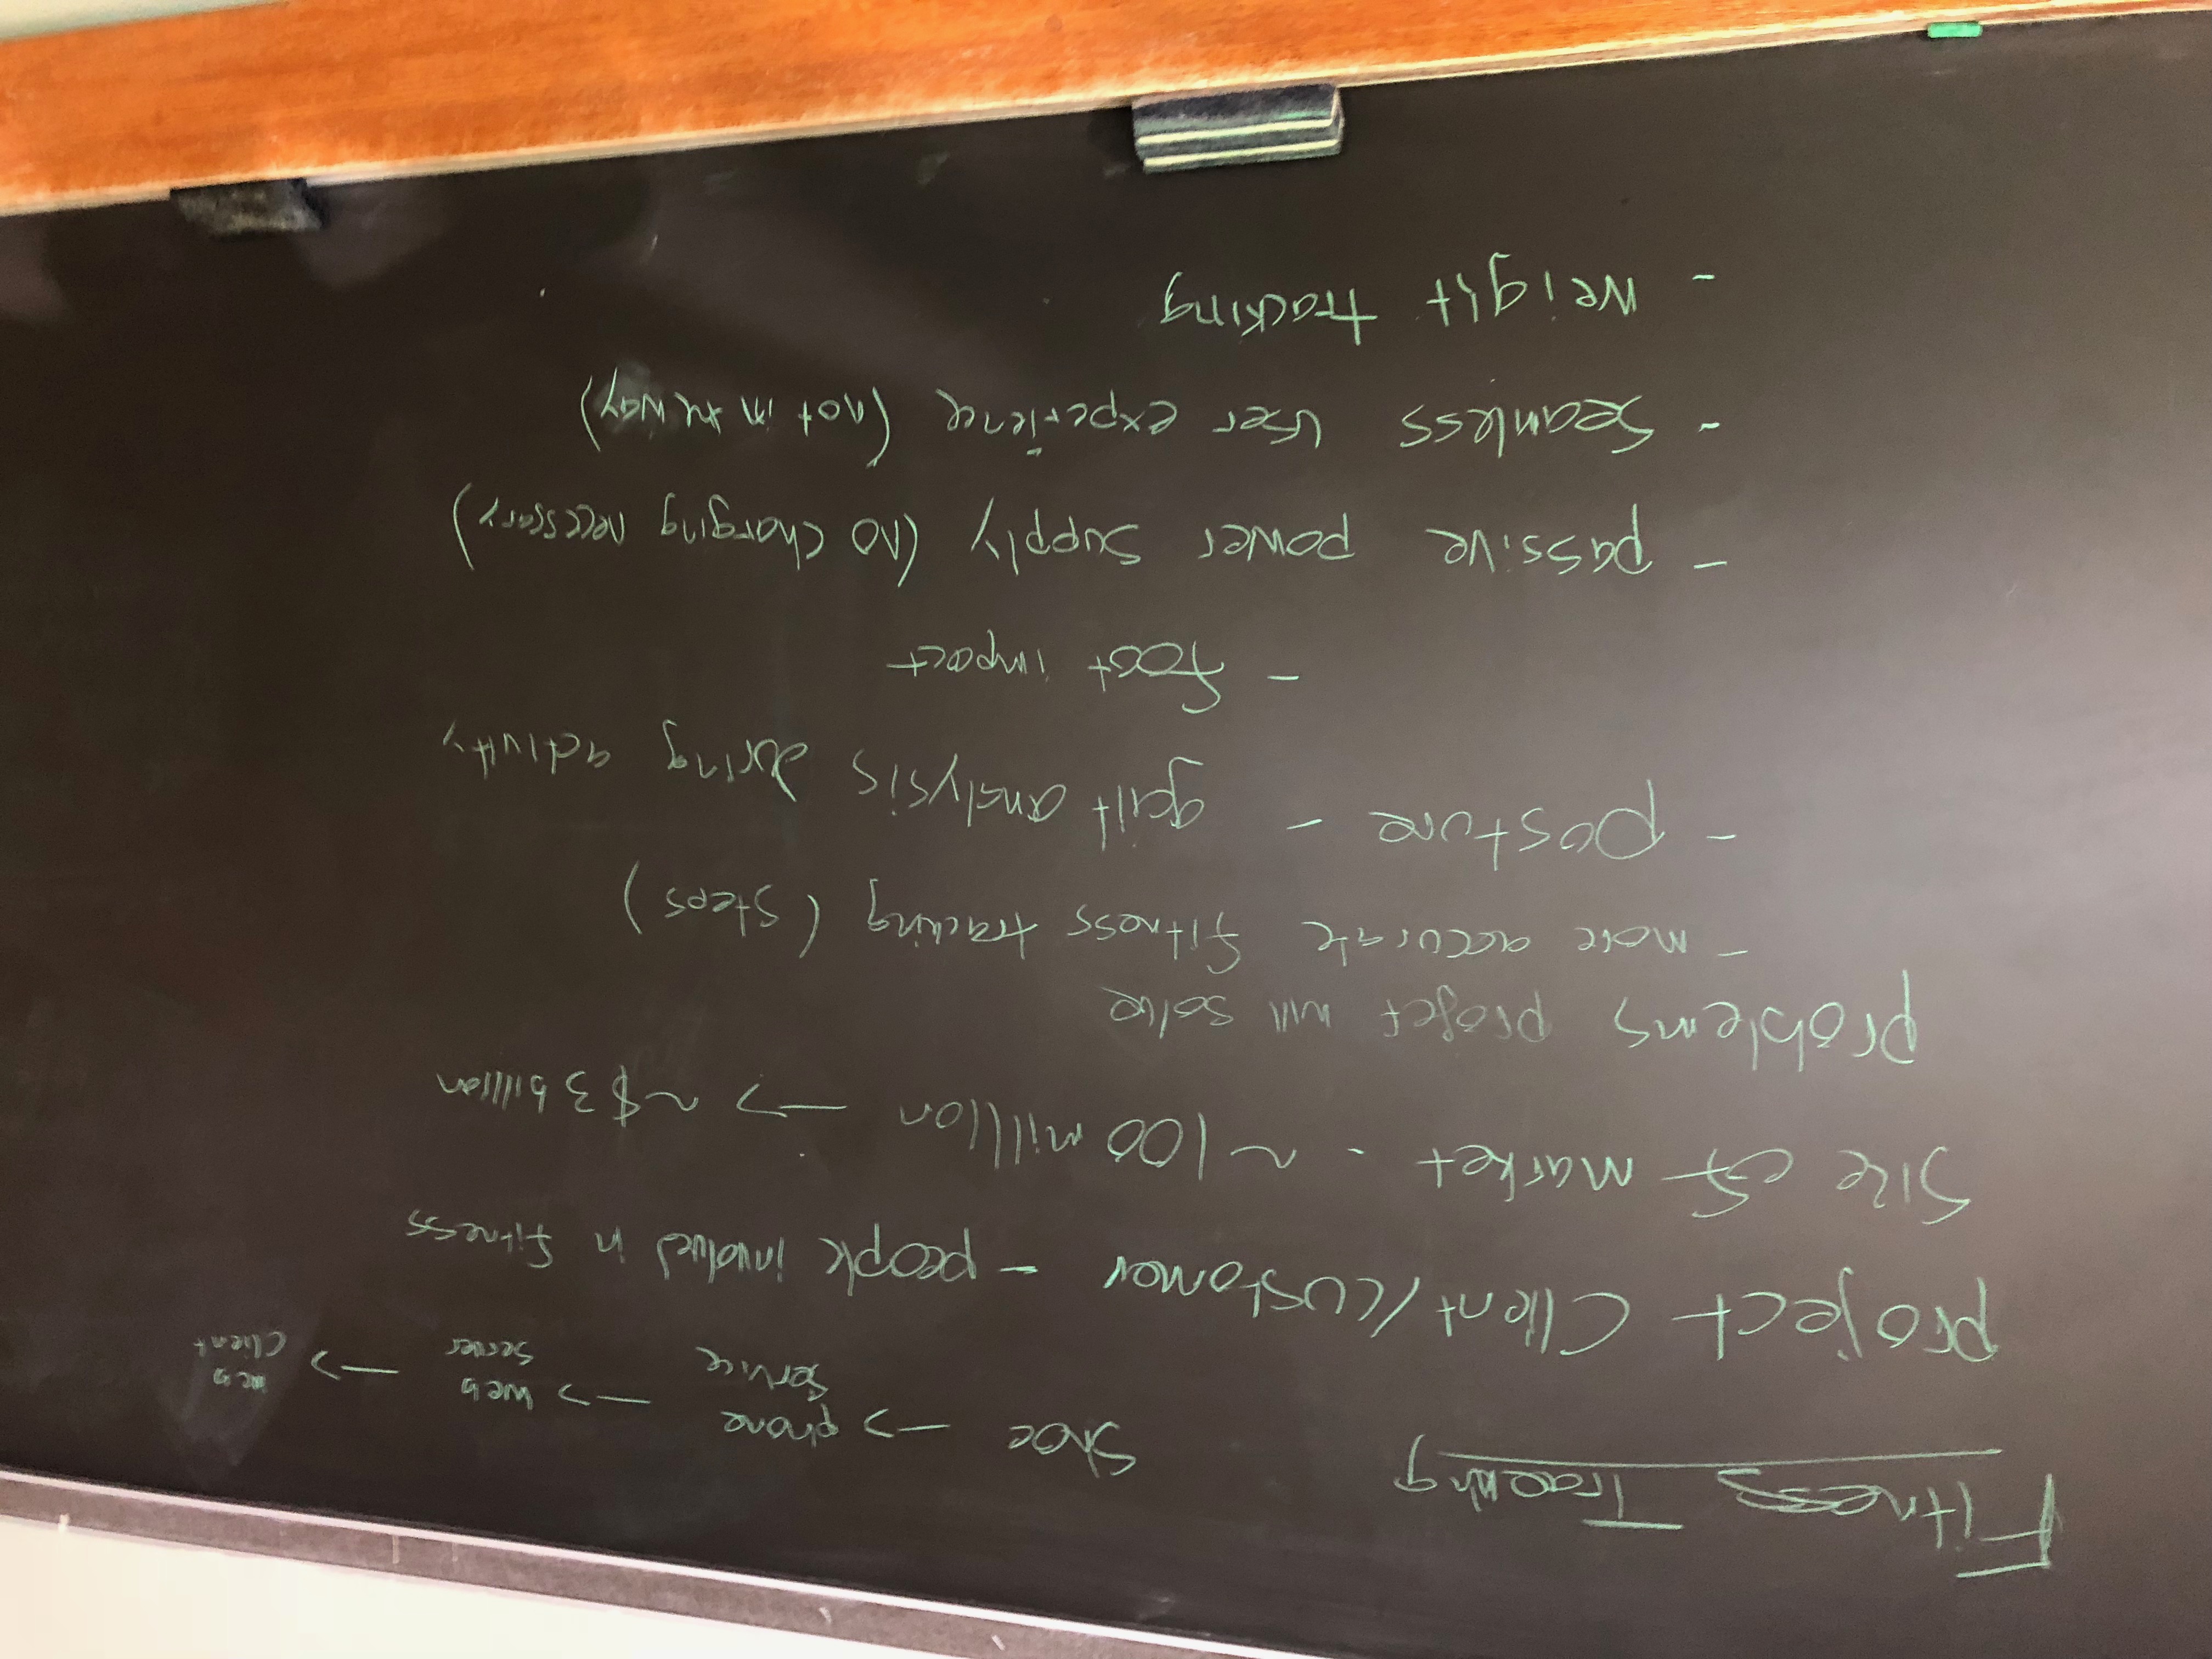 Fitness Tracking
Shoe → phone service → web server → web client
project Client/customer - people involved in fitness
Size of market - ~100 million → ~$3 billion
problems project will solve
- more accurate fitness tracking (steps)
- posture - gait analysis during activity
- foot impact
- passive power supply (no charging necessary)
- Seamless User experience (not in the way)
- weight tracking